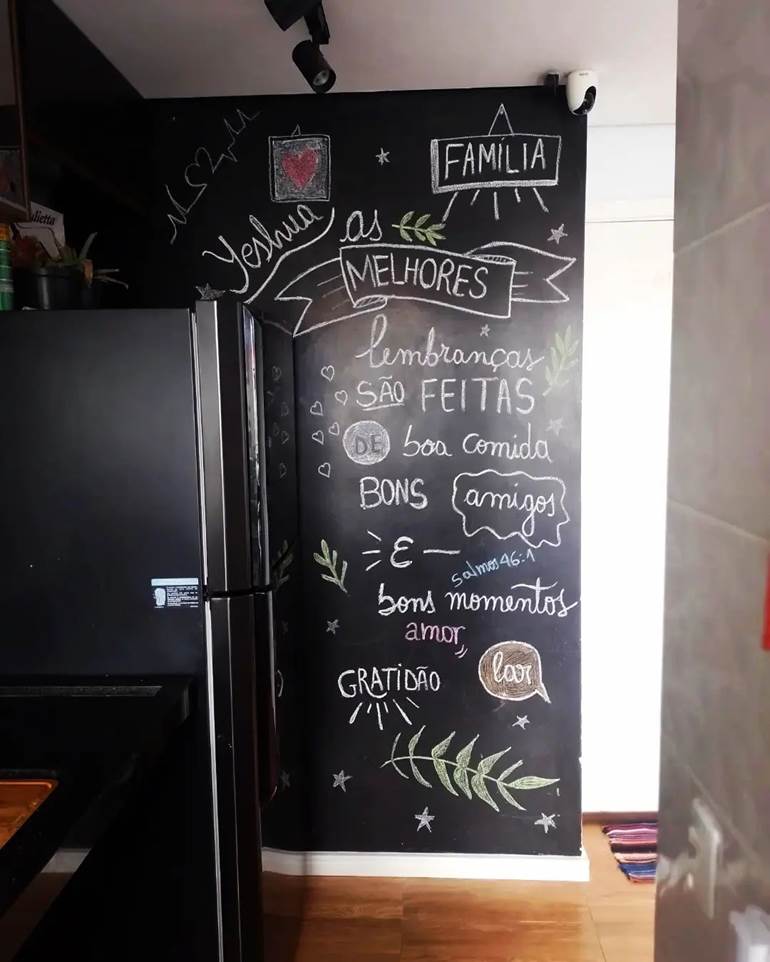 FAMÍLIA
Yeshua
as
MELHORES
lembranças
SÃO FEITAS
DE boa comida
BONS amigos
E
Salmos 46:1
bons momentos
amor
lar
GRATIDÃO